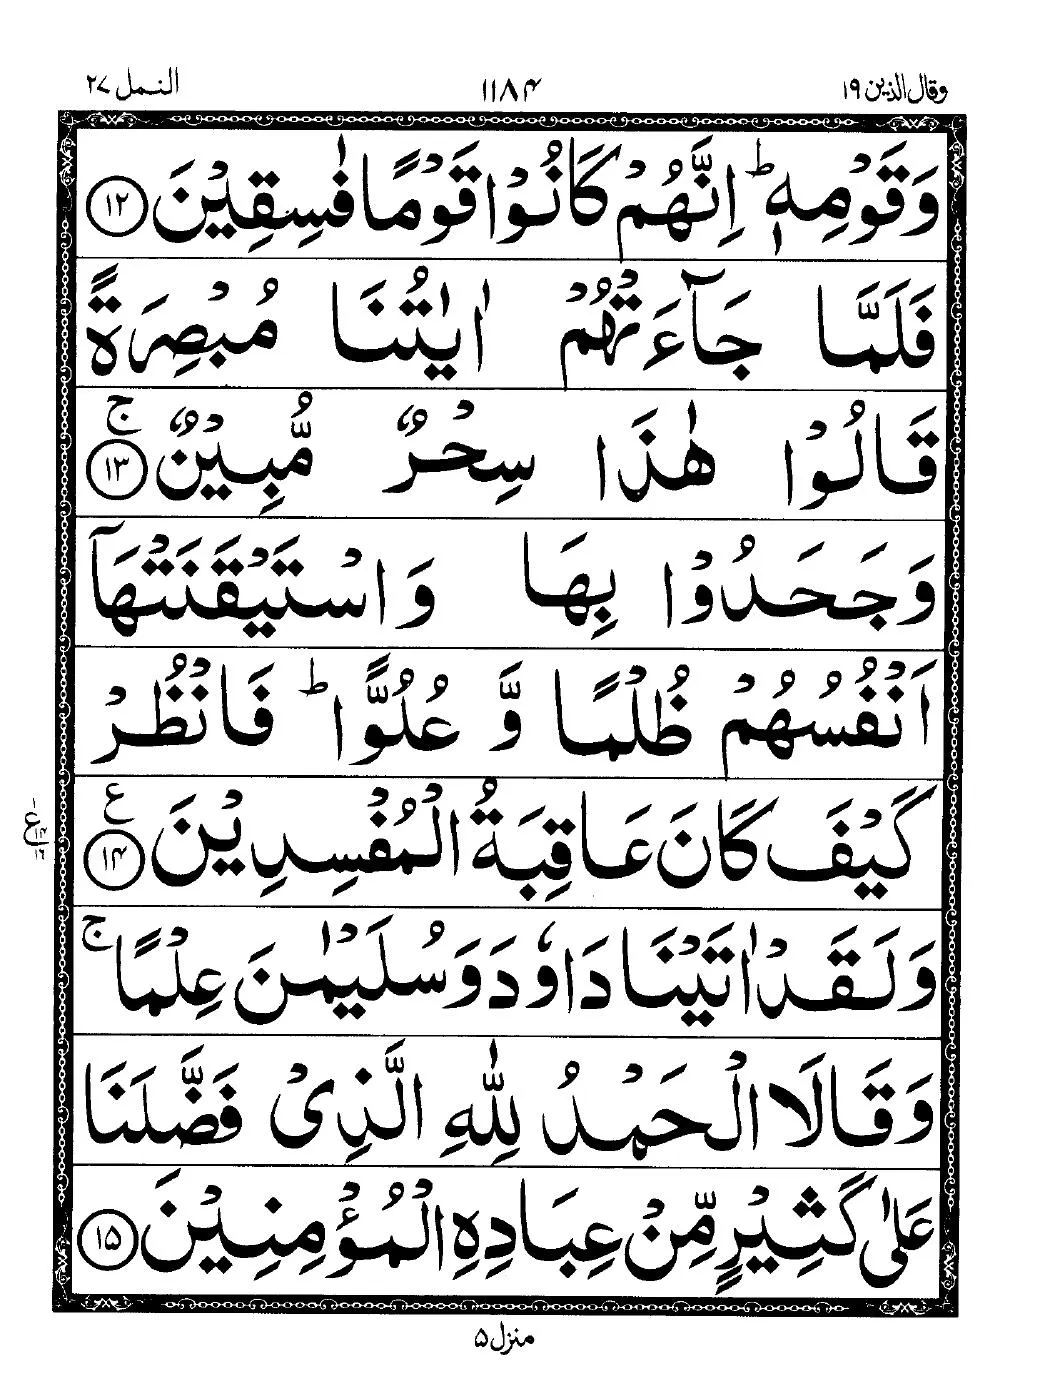 وقال الذین ۱۹ ۱۱۸۴ النمل ۲۷
وَقَوْمِهٖ ؕ اِنَّهُمْ كَانُوْا قَوْمًا فٰسِقِيْنَ ۱۲
فَلَمَّا جَآءَتْهُمْ اٰيٰتُنَا مُبْصِرَةً
قَالُوْا هٰذَا سِحْرٌ مُّبِيْنٌ ۚ ۱۳
وَجَحَدُوْا بِهَا وَاسْتَيْقَنَتْهَآ
اَنْفُسُهُمْ ظُلْمًا وَّ عُلُوًّا ؕ فَانْظُرْ
كَيْفَ كَانَ عَاقِبَةُ الْمُفْسِدِيْنَ ع ۱۴
وَلَقَدْ اٰتَيْنَا دَاوٗدَ وَسُلَيْمٰنَ عِلْمًا ۚ
وَقَالَا الْحَمْدُ لِلّٰهِ الَّذِيْ فَضَّلَنَا
عَلٰى كَثِيْرٍ مِّنْ عِبَادِهِ الْمُؤْمِنِيْنَ ۱۵
منزل ۵